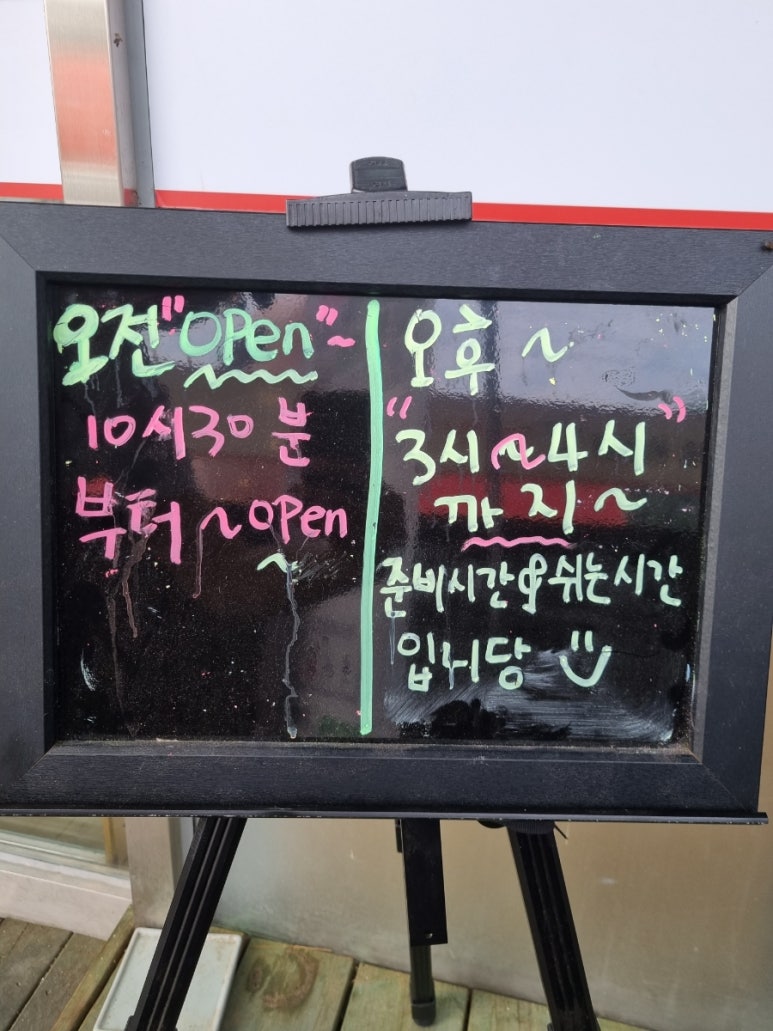 오전 "open" ~
10시30분
부터 ~ open
~
오후 ~
"3시 ~ 4시"
까지 ~
준비시간 & 쉬는시간
입니당